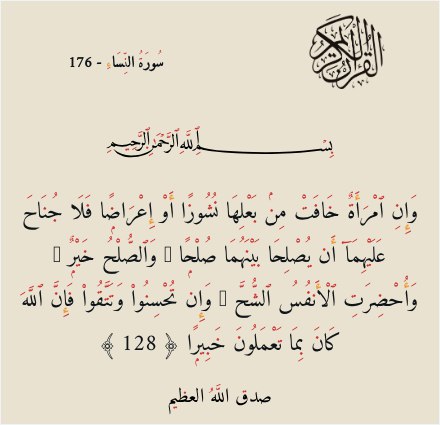 القرآن الكريم
سُورَةُ النِّسَاءِ - 176
بِسْمِ اللَّهِ الرَّحْمَٰنِ الرَّحِيمِ
وَإِنِ ٱمْرَأَةٌ خَافَتْ مِنۢ بَعْلِهَا نُشُوزًا أَوْ إِعْرَاضًۭا فَلَا جُنَاحَ
عَلَيْهِمَآ أَن يُصْلِحَا بَيْنَهُمَا صُلْحًۭا ۚ وَٱلصُّلْحُ خَيْرٌۭ ۗ
وَأُحْضِرَتِ ٱلْأَنفُسُ ٱلشُّحَّ ۚ وَإِن تُحْسِنُوا۟ وَتَتَّقُوا۟ فَإِنَّ ٱللَّهَ
كَانَ بِمَا تَعْمَلُونَ خَبِيرًۭا ﴿ 128 ﴾
صدق اللَّهُ العظيم